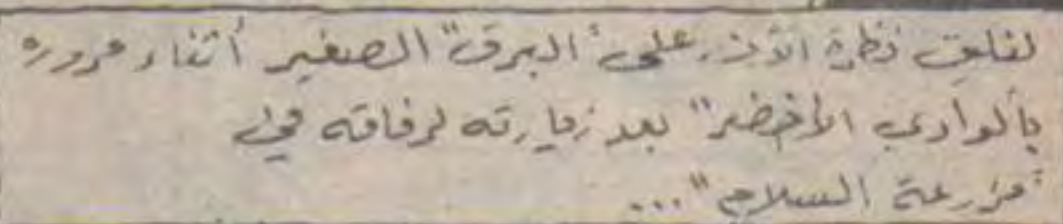 لنلقِ نظرة الآن على "البرق" الصغير أثناء مروره
بالوادي الأخضر" بعد زيارته لرفاقه في
"مزرعة السلام"...